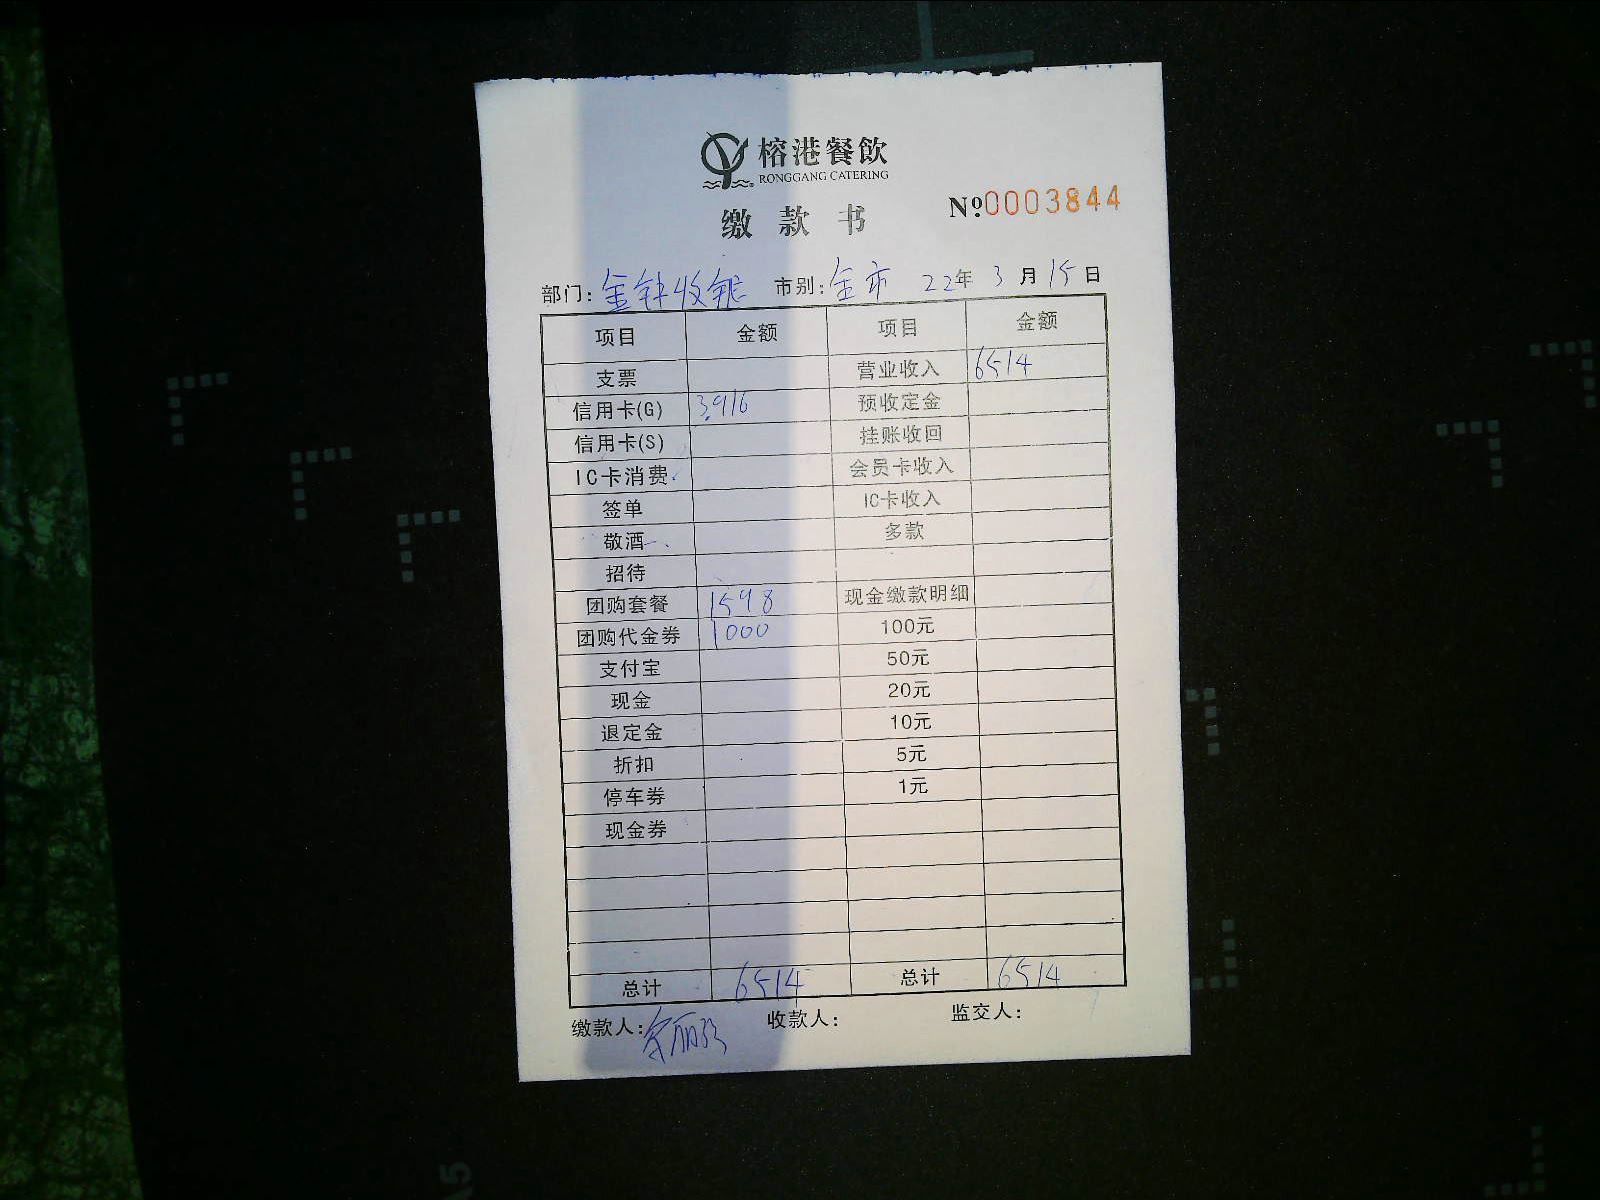 榕港餐飲
RONGGANG CATERING
缴款书 Nº0003844
部门: 金钟收银 市别: 全市 22年 3月 15日
项目 金额 项目 金额
支票 营业收入 6514
信用卡(G) 3916 预收定金
信用卡(S) 挂账收回
IC卡消费 会员卡收入
签单 IC卡收入
敬酒 多款
招待
团购套餐 1598 现金缴款明细
团购代金券 1000 100元
支付宝 50元
现金 20元
退定金 10元
折扣 5元
停车券 1元
现金券
总计 6514 总计 6514
缴款人: 收款人: 监交人:
A5